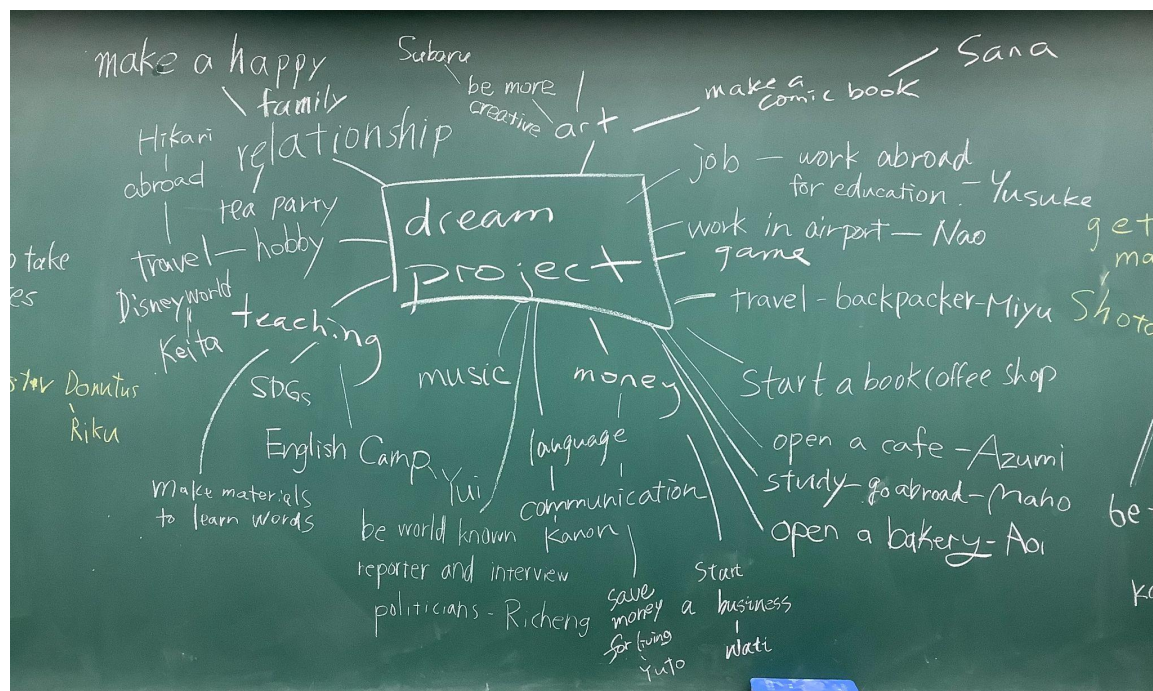 make a happy
family
relationship
Hikari
abroad
tea party
travel - hobby
Disneyworld
Keita
teaching
SDGs
English Camp
make materials
to learn words
Subaru
be more
creative
art
make a
comic book
Sana
dream
project
job - work abroad
for education - Yusuke
work in airport - Nao
game
travel - backpacker - Miyu
Start a book coffee shop
open a cafe - Azumi
study - go abroad - Maho
open a bakery - Aoi
music
Yui
money
language
communication
Kanon
be world known
reporter and interview
politicians - Richeng
save
money
for living
Yuto
Start
a business
Wati
take
Donutus
Riku
get
ma
Shot
be